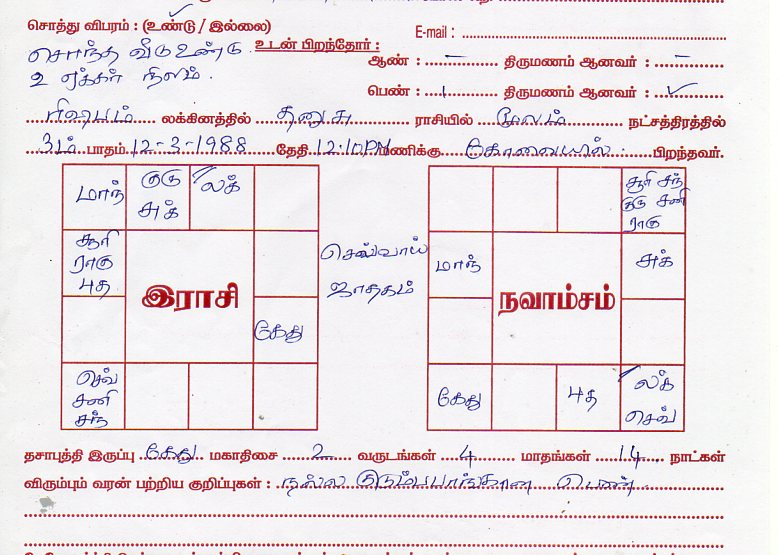 சொத்து விபரம் : (உண்டு / இல்லை)
E-mail :
சொந்த வீடு உண்டு
உடன் பிறந்தோர் :
2 ஏக்கர் நிலம்.
ஆண் : – திருமணம் ஆனவர் : –
பெண் : 1 திருமணம் ஆனவர் : ✓
ரிஷபம் லக்கினத்தில் தனுசு ராசியில் மூலம் நட்சத்திரத்தில்
3ம் பாதம் 12-3-1988 தேதி 12.10PM மணிக்கு கோவையில் பிறந்தவர்.
மாந்
குரு
சுக்
லக்
சூரி
ராகு
புத
இராசி
கேது
செவ்
சனி
சந்
செவ்வாய்
ஜாதகம்
சூரி சந்
குரு சனி
ராகு
மாந்
சுக்
நவாம்சம்
கேது
புத
லக்
செவ்
தசாபுத்தி இருப்பு கேது மகாதிசை 2 வருடங்கள் 4 மாதங்கள் 14 நாட்கள்
விரும்பும் வரன் பற்றிய குறிப்புகள் : நல்ல குடும்பபாங்கான பெண்.